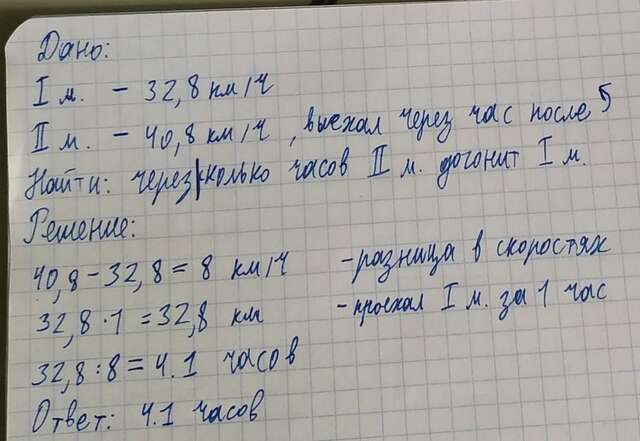 Дано:
I м. – 32,8 км/ч
II м. – 40,8 км/ч, выехал через час после
Найти: через сколько часов II м. догонит I м.
Решение:
40,8 – 32,8 = 8 км/ч – разница в скоростях
32,8 · 1 = 32,8 км – проехал I м. за 1 час
32,8 : 8 = 4.1 часов
Ответ: 4.1 часов